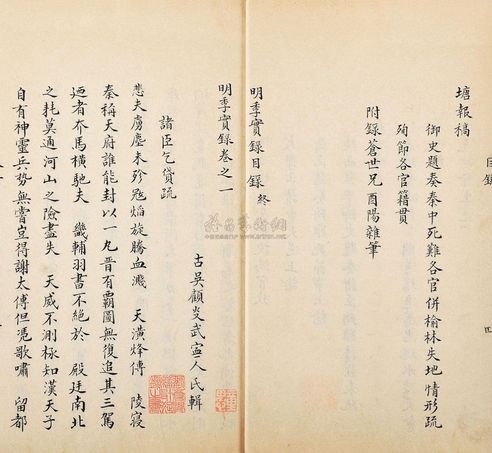 塘報稿
御史題奏秦中死難各官併榆林失地情形疏
殉節各官籍貫
附錄蒼世兄酉陽雜筆
明季實錄目錄終
明季實錄卷之一
古吳顧炎武寧人氏輯
諸臣乞貸疏
悲夫虜塵未殄寇焰旋騰血濺 天潢烽傳 陵寢
秦稱天府誰能封以一丸晉有霸圖無復追其三駕
迺者介馬橫馳夫 畿輔羽書不絕於 殿廷南北
之耗莫通河山之險盡失 天威不測極知漢天子
自有神靈兵勢無嘗豈得謝太傅但憑歌嘯 留都
目錄
四